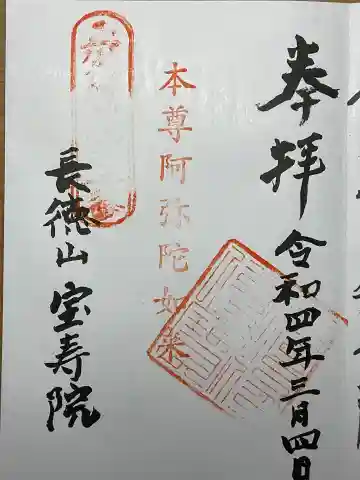 奉拝
令和四年三月四日
本尊阿弥陀如来
長徳山
宝寿院